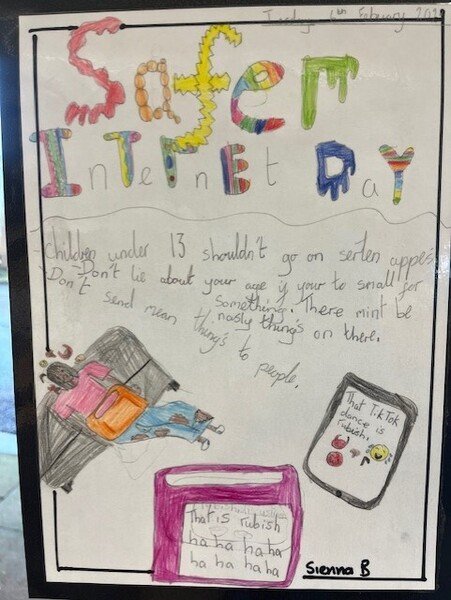 Tuesday 6th February
Safer
InTeRnEt DaY
children under 13 shouldn't go on serten appe's
Don't lie about your age if your to small for
something. There mint be
nasty things on there.
Don't send mean things to people.
That TikTok
dance is
rubish.
That is rubish
ha ha ha ha
ha ha ha ha
Sienna B